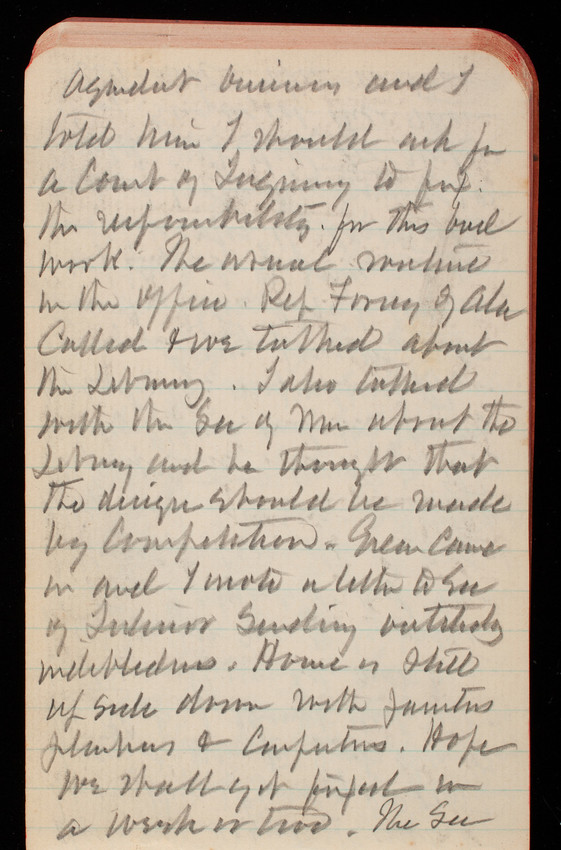 business and I
told him I should ask for
a Court of Inquiry to fix
the responsibility for this bad
work. The usual routine
in the office. Rep Forney of Ala
Called & we talked about
the Library. I also talked
with the Sec of War about the
Library and he thought that
the design should be made
by Competition. Green Came
in and I wrote a letter to Sec
of Interior Sending
indebtedness. House is Still
up side down with painters
plumbers & Carpenters. Hope
we shall get fixed in
a week or two. The Sec